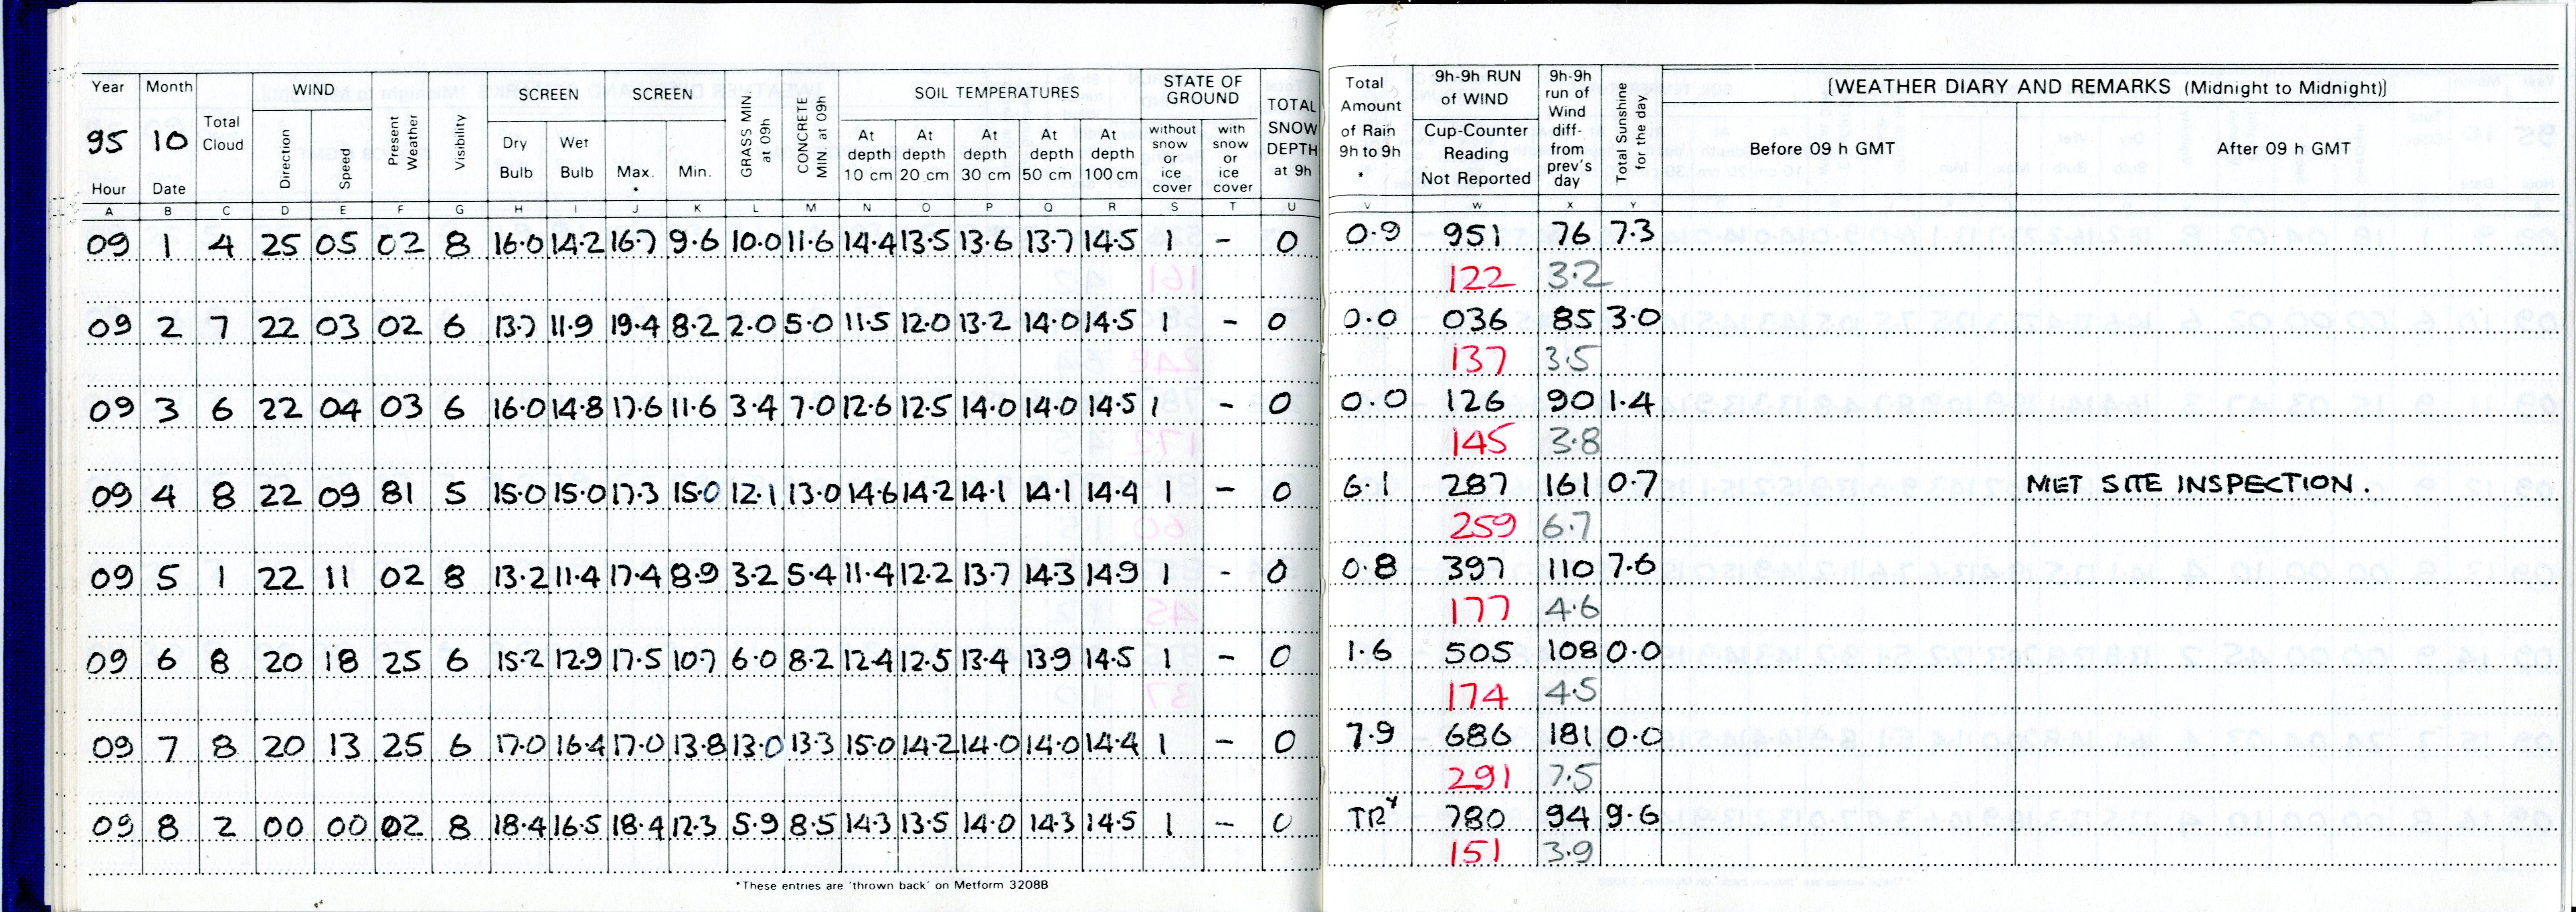 Year Month Total Cloud WIND Present Weather Visibility SCREEN SCREEN GRASS MIN at 09h CONCRETE MIN at 09h SOIL TEMPERATURES STATE OF GROUND TOTAL SNOW DEPTH at 9h Total Amount of Rain 9h to 9h * 9h-9h RUN of WIND 9h-9h run of Wind diff- from prev's day Total Sunshine for the day [WEATHER DIARY AND REMARKS (Midnight to Midnight)]
95 10 Direction Speed Dry Bulb Wet Bulb Max. * Min. At depth 10 cm At depth 20 cm At depth 30 cm At depth 50 cm At depth 100 cm without snow or ice cover with snow or ice cover Cup-Counter Reading Not Reported Before 09 h GMT After 09 h GMT
Hour Date
A B C D E F G H I J K L M N O P Q R S T U V W X Y
09 1 4 25 05 02 8 16.0 14.2 16.7 9.6 10.0 11.6 14.4 13.5 13.6 13.7 14.5 1 - 0 0.9 951 76 7.3
122 3.2
09 2 7 22 03 02 6 13.7 11.9 19.4 8.2 2.0 5.0 11.5 12.0 13.2 14.0 14.5 1 - 0 0.0 036 85 3.0
137 3.5
09 3 6 22 04 03 6 16.0 14.8 17.6 11.6 3.4 7.0 12.6 12.5 14.0 14.0 14.5 1 - 0 0.0 126 90 1.4
145 3.8
09 4 8 22 09 81 5 15.0 15.0 17.3 15.0 12.1 13.0 14.6 14.2 14.1 14.1 14.4 1 - 0 6.1 287 161 0.7 MET SITE INSPECTION.
259 6.7
09 5 1 22 11 02 8 13.2 11.4 17.4 8.9 3.2 5.4 11.4 12.2 13.7 14.3 14.9 1 - 0 0.8 397 110 7.6
177 4.6
09 6 8 20 18 25 6 15.2 12.9 17.5 10.7 6.0 8.2 12.4 12.5 13.4 13.9 14.5 1 - 0 1.6 505 108 0.0
174 4.5
09 7 8 20 13 25 6 17.0 16.4 17.0 13.8 13.0 13.3 15.0 14.2 14.0 14.0 14.4 1 - 0 7.9 686 181 0.0
291 7.5
09 8 2 00 00 02 8 18.4 16.5 18.4 12.3 5.9 8.5 14.3 13.5 14.0 14.3 14.5 1 - 0 TR 780 94 9.6
151 3.9
*These entries are 'thrown back' on Metform 3208B